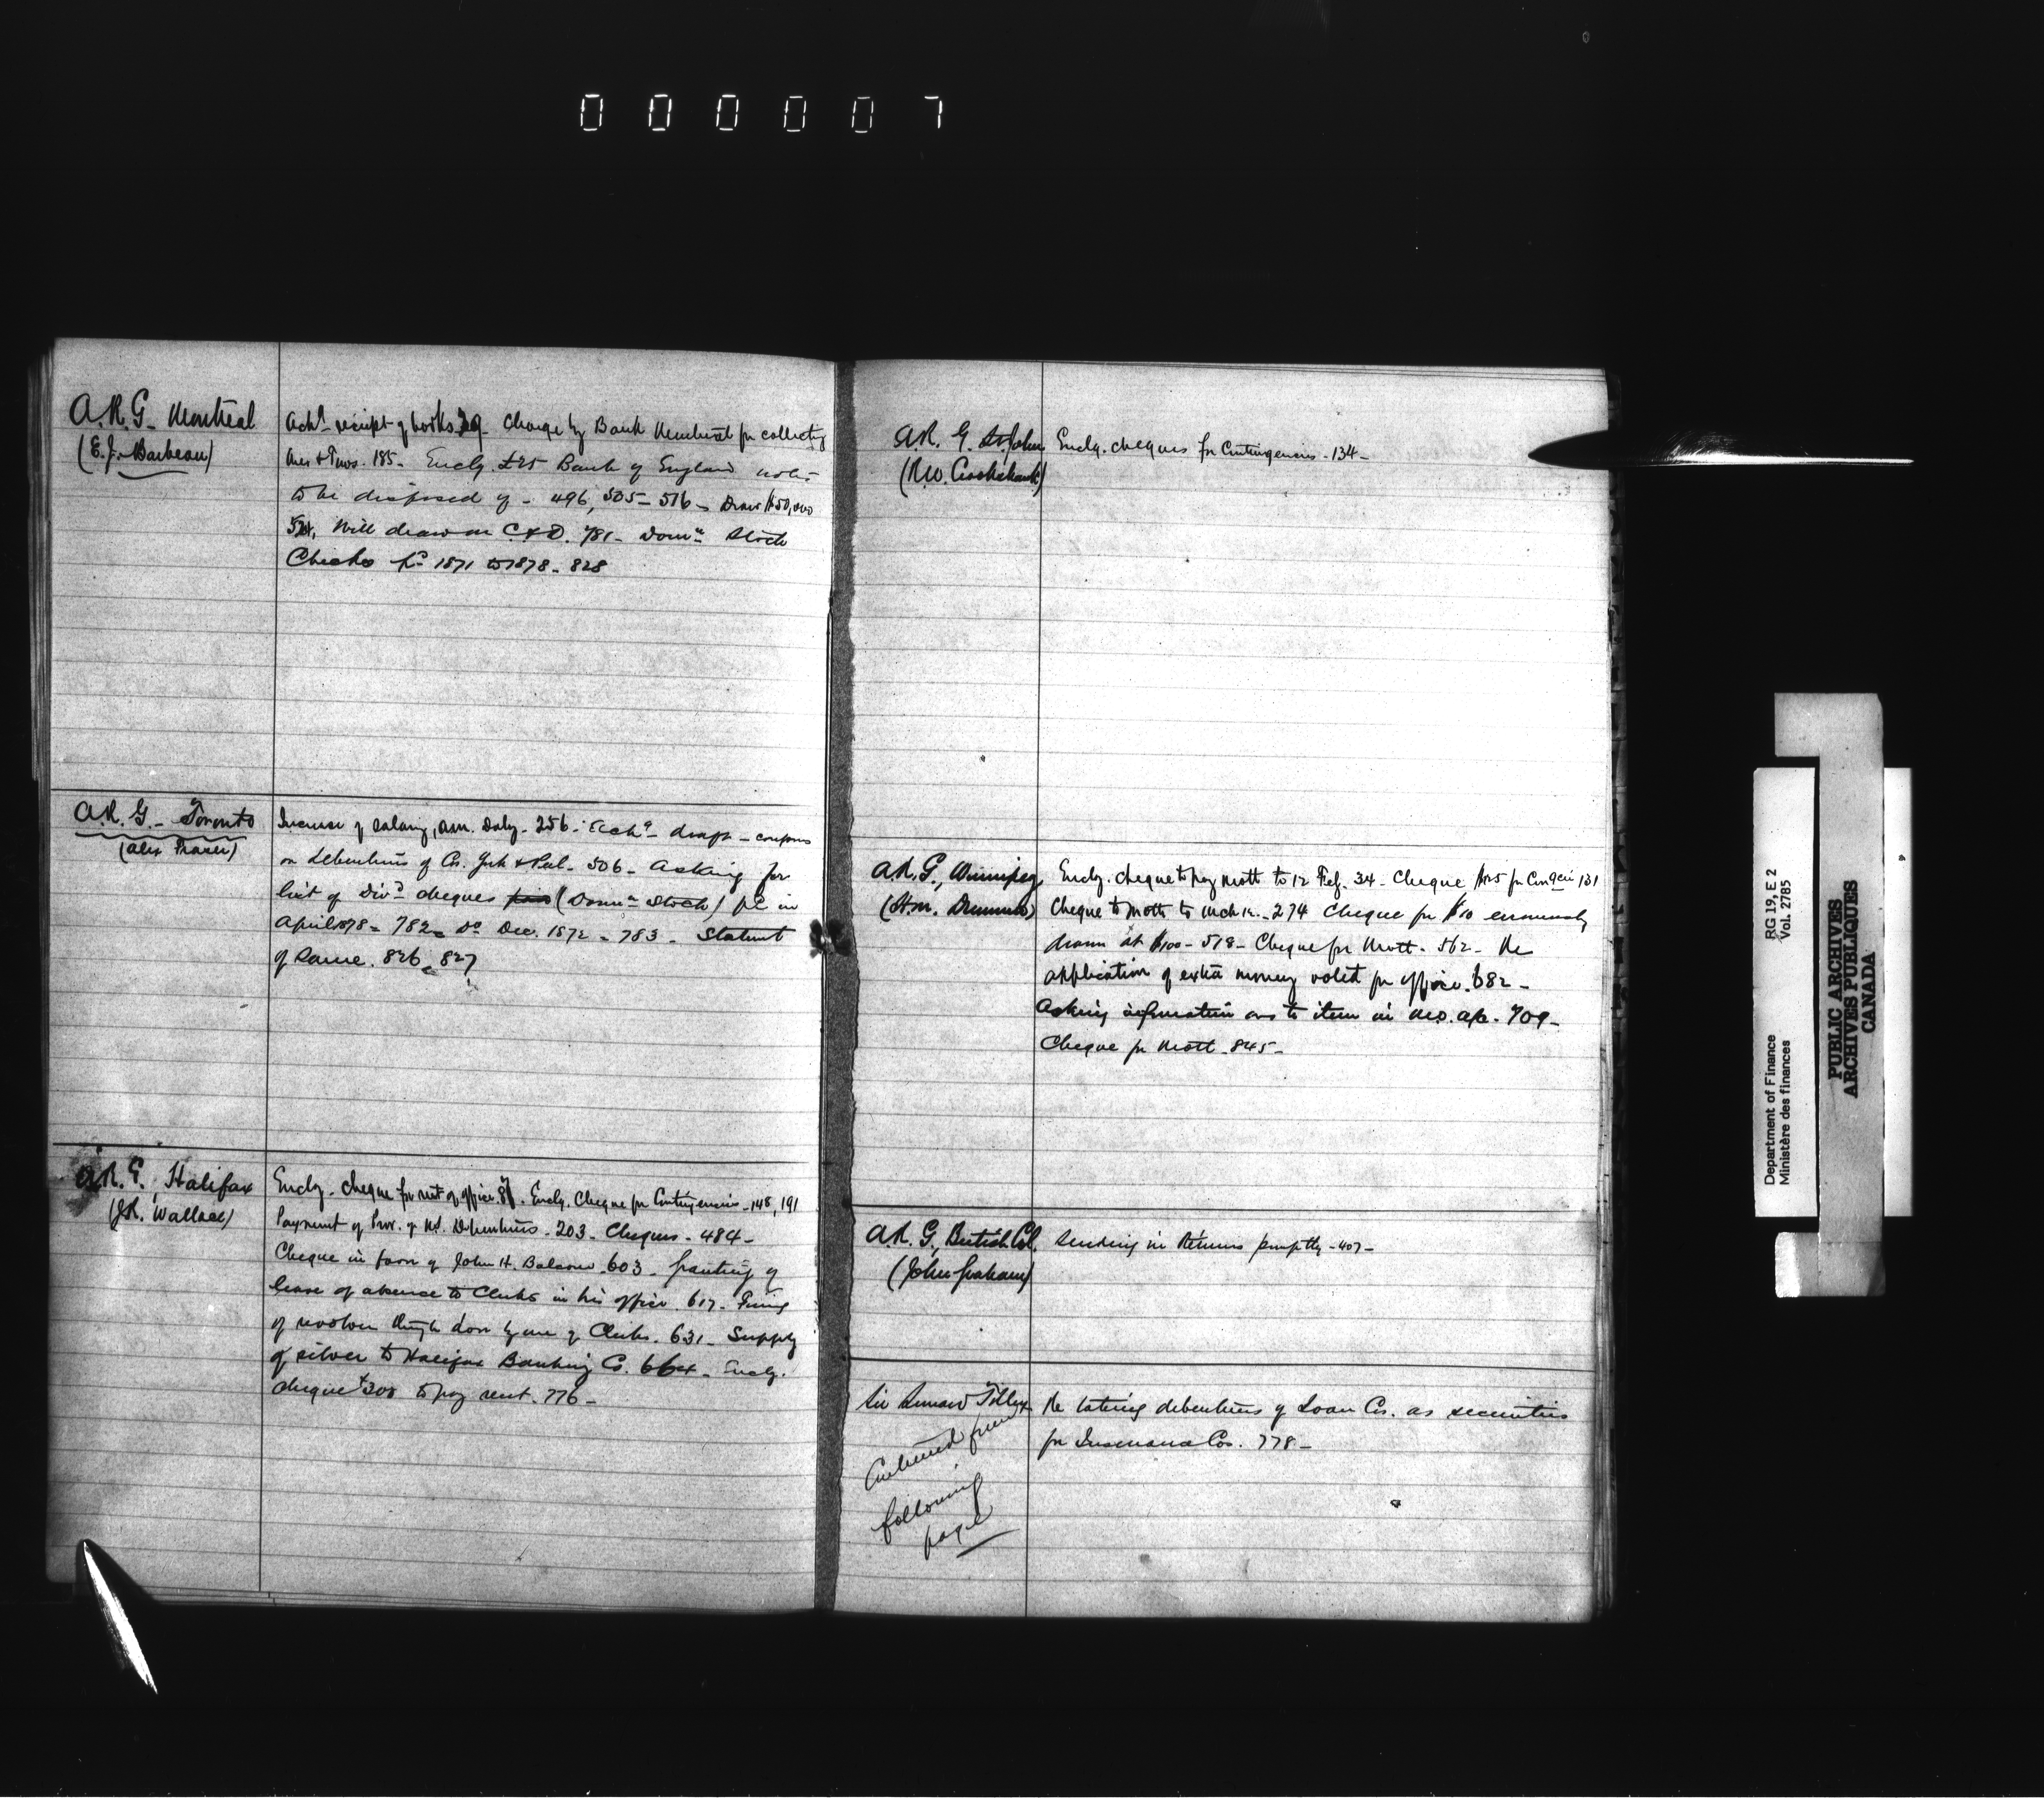 000007
A.R.G. Montreal
(E.J. Barbeau)
Ackg receipt of books 29 - Charge by Bank Montreal for collecting
185 - Enclg. £25 Bank of England notes
to be disposed of - 496, 505 - 516 - Draw $50,000
524, Will draw on C & D. 781 - Domn Stock
Checks pd 1871 to 1878 - 828
A.R.G. - Toronto
(Alex Fraser)
Increase of salary, 256 - coupons
on debentures of Co. York & Peel - 506 - Asking for
list of Divd cheques (Domn Stock) pd in
April 1878 - 782 - Do Dec. 1872 - 783 - Statemt
of Same. 826, 827
A.R.G. Halifax
(J.R. Wallace)
Enclg. cheque for rent of office 87. Enclg. Cheque for Contingencies - 148, 191
Payment of Prov. of N.S. Debentures - 203 - Cheques - 484 -
Cheque in favor of John H. Balcom - 603 - Granting of
leave of absence to Clerks in his office. 617 - Firing
of revolver through door by one of Clerks. 631 - Supply
of silver to Halifax Banking Co. 664 - Enclg.
cheque $300 to pay rent. 776 -
A.R.G. St. John
(R.W. Crookshank)
Enclg. cheques for Contingencies - 134 -
A.R.G., Winnipeg
(H.M. Drummond)
Enclg. cheque to pay Mott to 12 Feb. 34 - Cheque $125 for Contgcies 131
Cheque to Mott to Mch 12 - 274 Cheque for $10 erroneously
drawn at $100 - 518 - Cheque for Mott - 562 - Re
application of extra money voted for office. 682 -
Asking information as to item in a/c - 709 -
Cheque for Mott - 845 -
A.R.G., British Col.
(John Graham)
Sending in Returns promptly - 407 -
Sir Leonard Tilley
Continued from
following
page
Re taking debentures of Loan Cos. as securities
for Insurance Cos. 778 -
Department of Finance
Ministère des finances
RG 19, E 2
Vol. 2785
PUBLIC ARCHIVES
ARCHIVES PUBLIQUES
CANADA